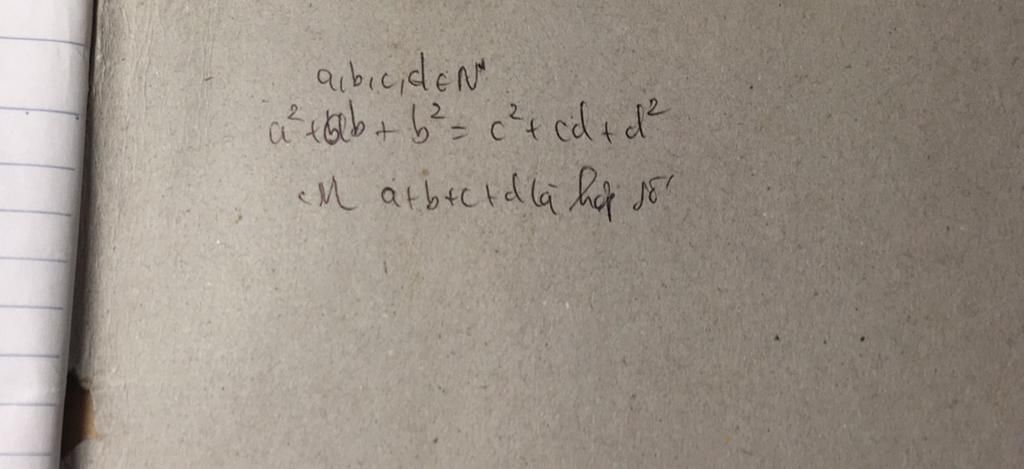 a,b,c,d ∈ N*
a² + ab + b² = c² + cd + d²
CM a+b+c+d là hợp số